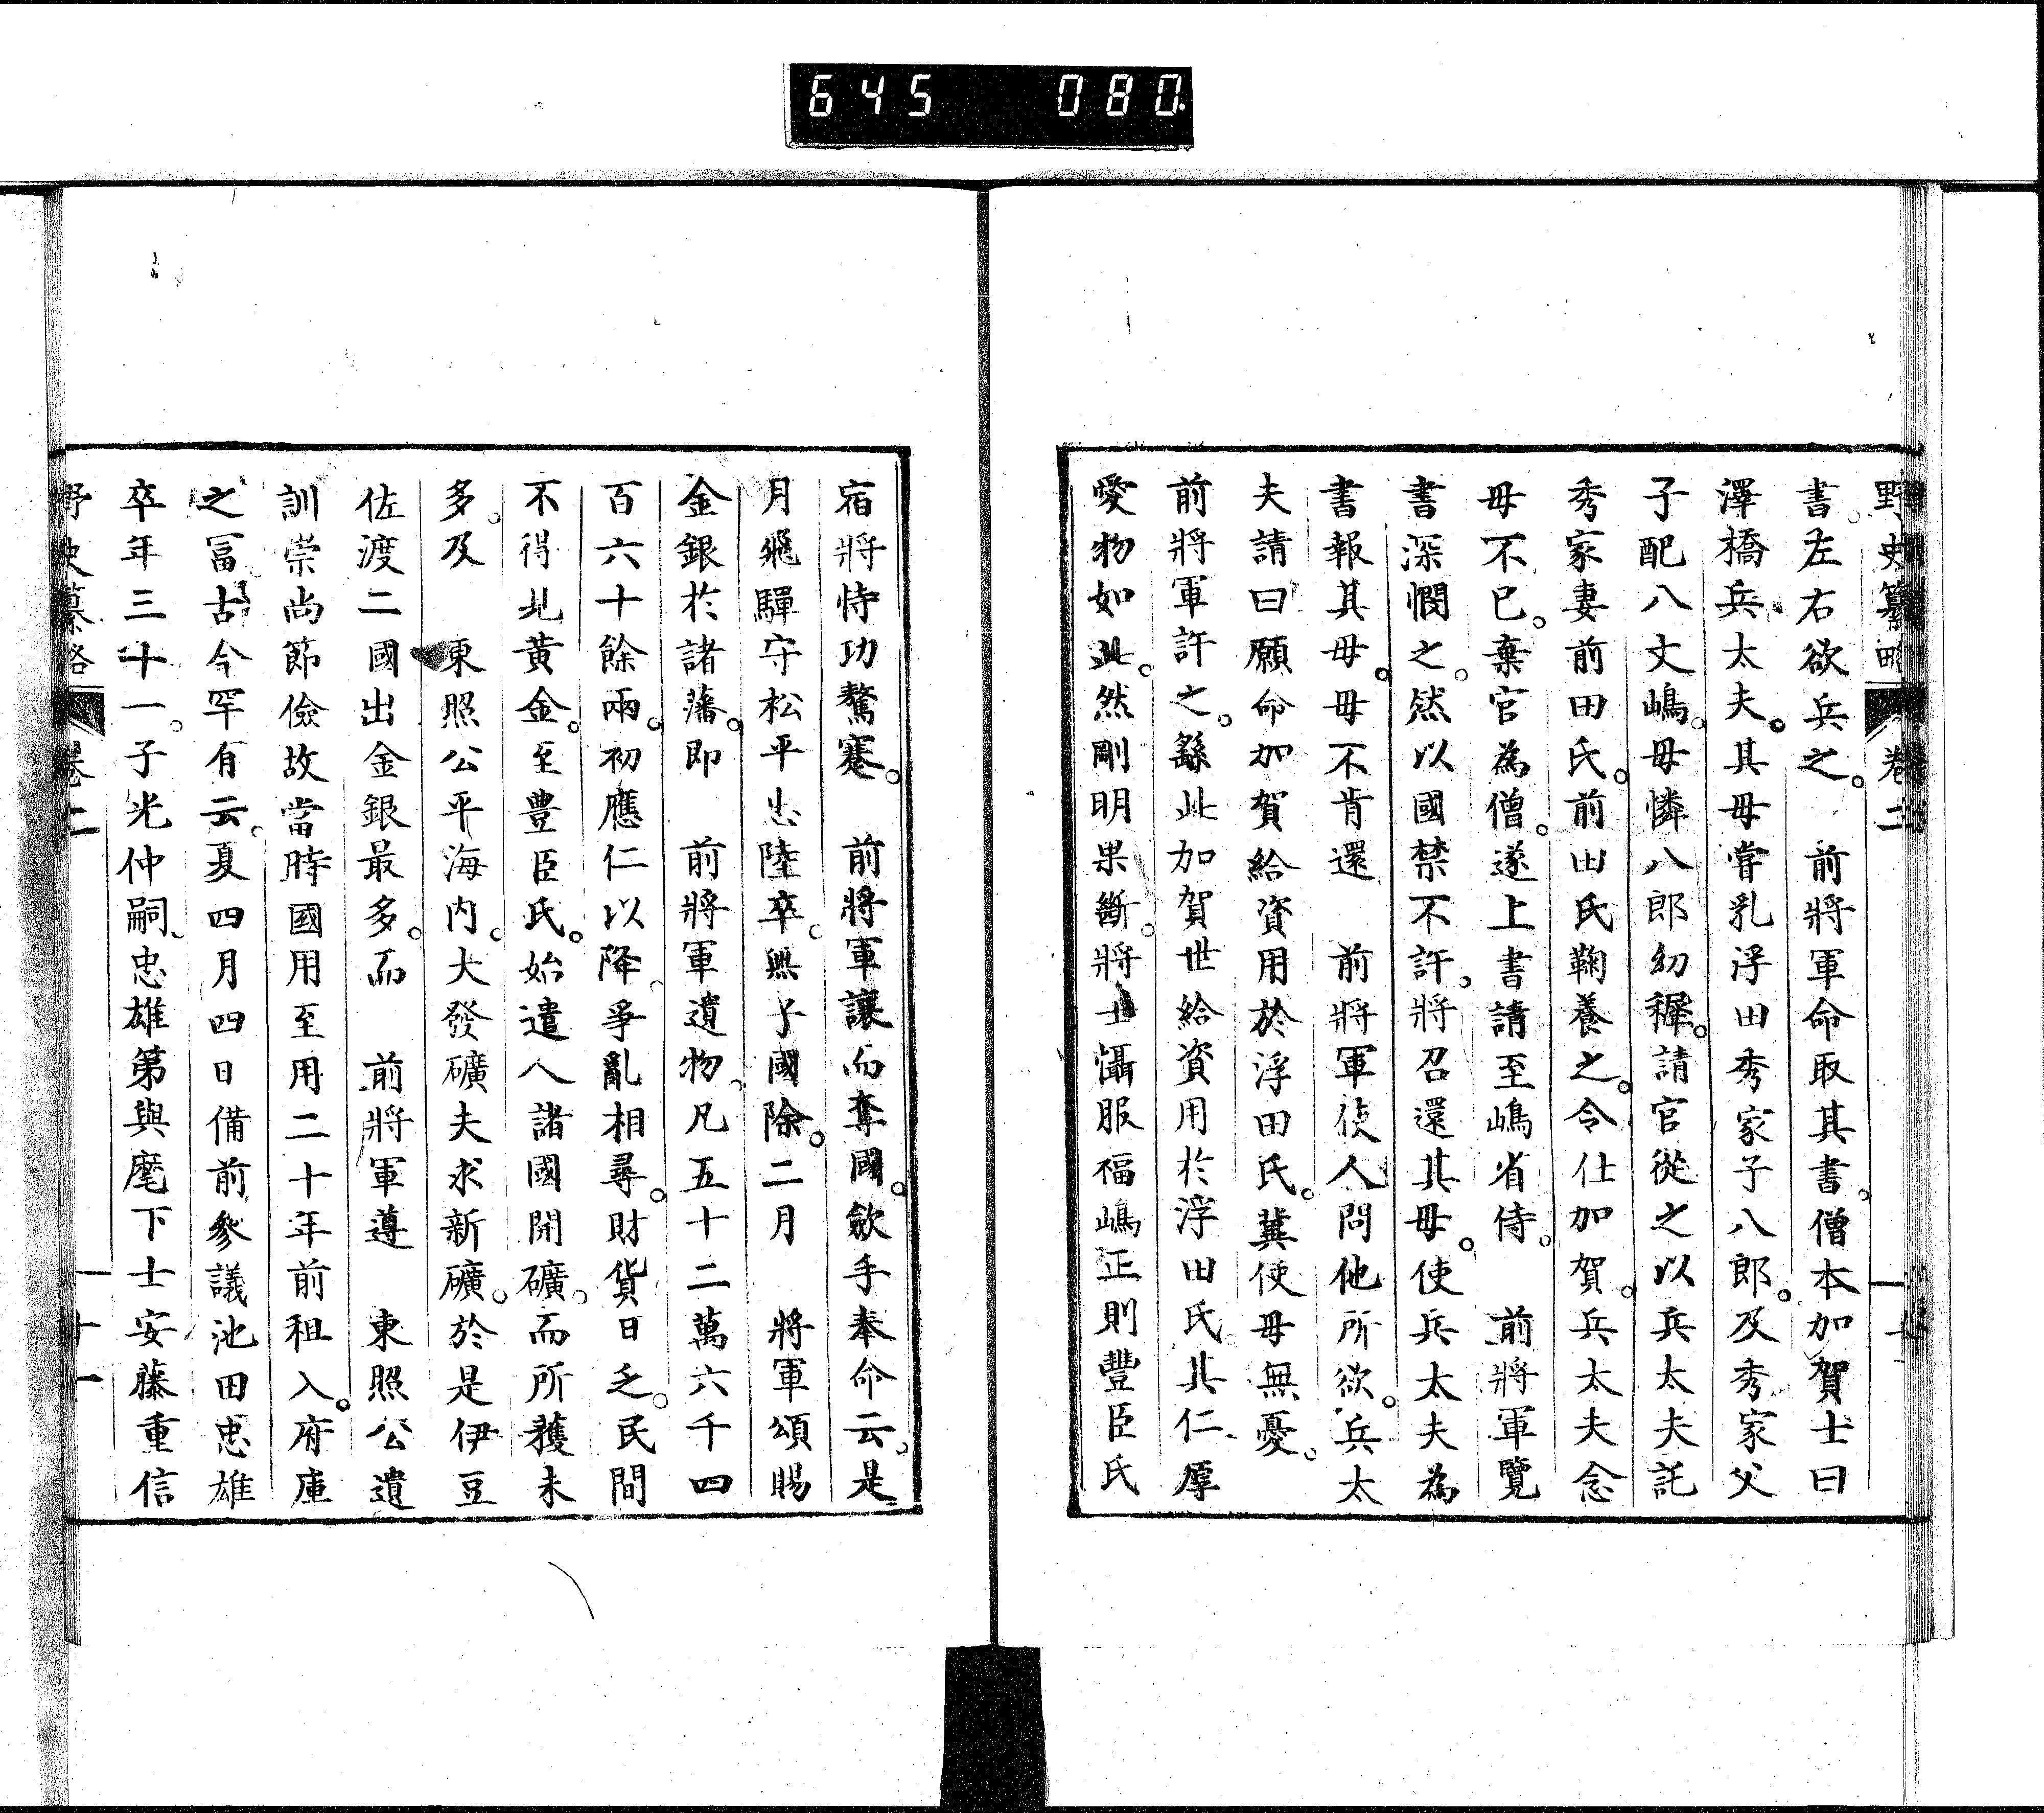 645 080
野史纂略 卷二
書。左右欲兵之。　前將軍命取其書。僧本加賀士曰
澤橋兵太夫。其母嘗乳浮田秀家子八郎。及秀家父
子配八丈嶋。母憐八郎幼穉。請官從之以兵太夫託
秀家妻前田氏。前田氏鞠養之。令仕加賀。兵太夫念
母不已。棄官為僧。遂上書請至嶋省侍。　前將軍覽
書深憫之。然以國禁不許。將召還其母。使兵太夫為
書報其母。母不肯還　前將軍使人問他所欲。兵太
夫請曰願命加賀給資用於浮田氏。冀使母無憂。
前將軍許之。繇此加賀世給資用於浮田氏。其仁厚
愛物如此。然剛明果斷。將士懾服福嶋正則豐臣氏
宿將恃功驁蹇。　前將軍讓而奪國。斂手奉命云。是
月飛驒守松平忠陸卒。無子國除。二月　將軍頒賜
金銀於諸藩。即　前將軍遺物。凡五十二萬六千四
百六十餘兩。初應仁以降。爭亂相尋。財貨日乏。民間
不得見黃金。至豊臣氏。始遣人諸國開礦。而所獲未
多。及　東照公平海内。大發礦夫求新礦。於是伊豆
佐渡二國出金銀最多。而　前將軍遵　東照公遺
訓崇尚節儉故當時國用至用二十年前租入。府庫
之冨古今罕有云。夏四月四日備前參議池田忠雄
卒年三十一。子光仲嗣。忠雄第與麾下士安藤重信
野史纂略 卷二 十一